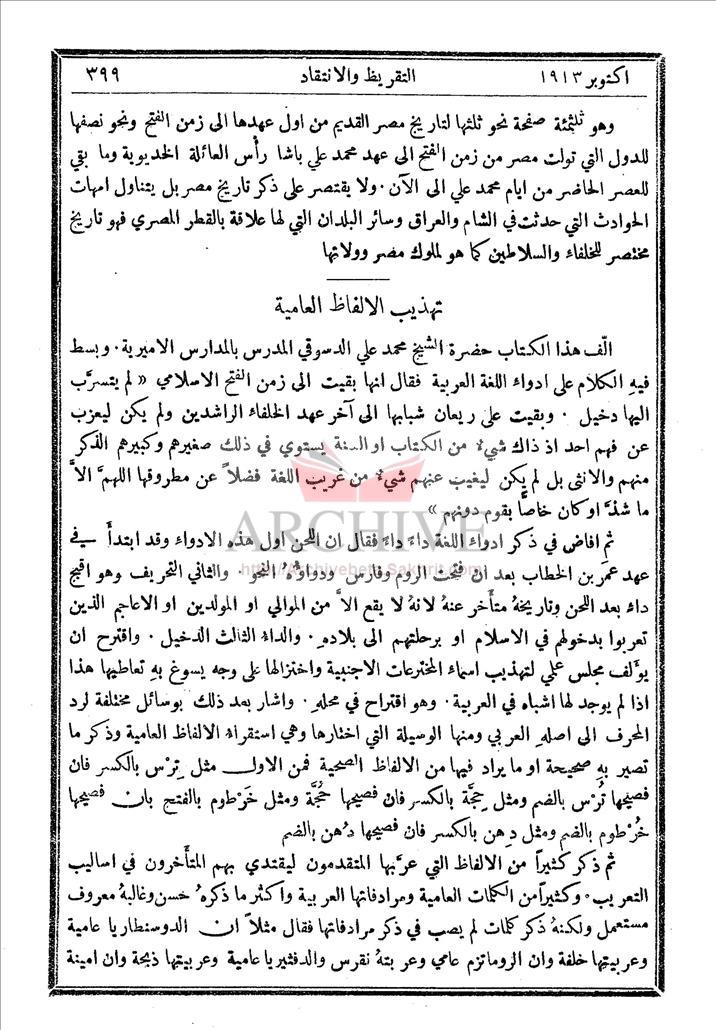 اكتوبر ١٩١٣ التقريظ والانتقاد ٣٩٩
وهو ثلثمئة صفحة نحو ثلثها لتاريخ مصر القديم من اول عهدها الى زمن الفتح ونحو نصفها
للدول التي تولت مصر من زمن الفتح الى عهد محمد علي باشا رأس العائلة الخديوية وما بقي
للعصر الحاضر من ايام محمد علي الى الآن. ولا يقتصر على ذكر تاريخ مصر بل يتناول امهات
الحوادث التي حدثت في الشام والعراق وسائر البلدان التي لها علاقة بالقطر المصري فهو تاريخ
مختصر للخلفاء والسلاطين كما هو لملوك مصر وولاتها
تهذيب الالفاظ العامية
الّف هذا الكتاب حضرة الشيخ محمد علي الدسوقي المدرس بالمدارس الاميرية. وبسط
فيهِ الكلام على ادواء اللغة العربية فقال انها بقيت الى زمن الفتح الاسلامي « لم يتسرَّب
اليها دخيل . وبقيت على ريعان شبابها الى آخر عهد الخلفاء الراشدين ولم يكن ليعزب
عن فهم احد اذ ذاك شيءٌ من الكتاب او السنة يستوي في ذلك صغيرهم وكبيرهم الذكر
منهم والانثى بل لم يكن ليغيب عنهم شيءٌ من غريب اللغة فضلاً عن مطروقها اللهمَّ الاَّ
ما شذَّ او كان خاصًّا بقوم دونهم »
ثم افاض في ذكر ادواء اللغة داءً داءً فقال ان اللحن اول هذه الادواء وقد ابتدأ في
عهد عمر بن الخطاب بعد ان فتحت الروم وفارس ودواؤهُ النحو . والثاني التحريف وهو اقبح
داء بعد اللحن وتاريخهُ متأخر عنهُ لانهُ لا يقع الاَّ من الموالي او المولدين او الاعاجم الذين
تعربوا بدخولهم في الاسلام او برحلتهم الى بلادهِ. والداء الثالث الدخيل . واقترح ان
يؤَلف مجلس علمي لتهذيب اسماء المخترعات الاجنبية واختزالها على وجه يسوغ بهِ تعاطيها هذا
اذا لم يوجد لها اشباه في العربية. وهو اقتراح في محلهِ . واشار بعد ذلك بوسائل مختلفة لرد
المحرف الى اصلهِ العربي ومنها الوسيلة التي اختارها وهي استقراء الالفاظ العامية وذكر ما
تصير بهِ صحيحة او ما يراد فيها من الالفاظ الصحيحة فمن الاول مثل تِرْس بالكسر فان
فصيحها تُرْس بالضم ومثل حِجَّة بالكسر فان فصيحها حُجَّة ومثل خَرْطوم بالفتح بان فصيحها
خُرْطوم بالضم ومثل دِهن بالكسر فان فصيحها دُهن بالضم
ثم ذكر كثيراً من الالفاظ التي عرَّبها المتقدمون ليقتدي بهم المتأخرون في اساليب
التعريب. وكثيراً من الكلمات العامية ومرادفاتها العربية واكثر ما ذكرهُ حسن وغالبهُ معروف
مستعمل ولكنهُ ذكر كلمات لم يصب في ذكر مرادفاتها فقال مثلاً ان الدوسنطاريا عامية
وعربيتها خلفة وان الروماتزم عامي وعربتهُ نقرس والدفثيريا عامية وعربيتها ذبحة وان امينة
ARCHIVE
http://Archivebeta.Sakhrit.com